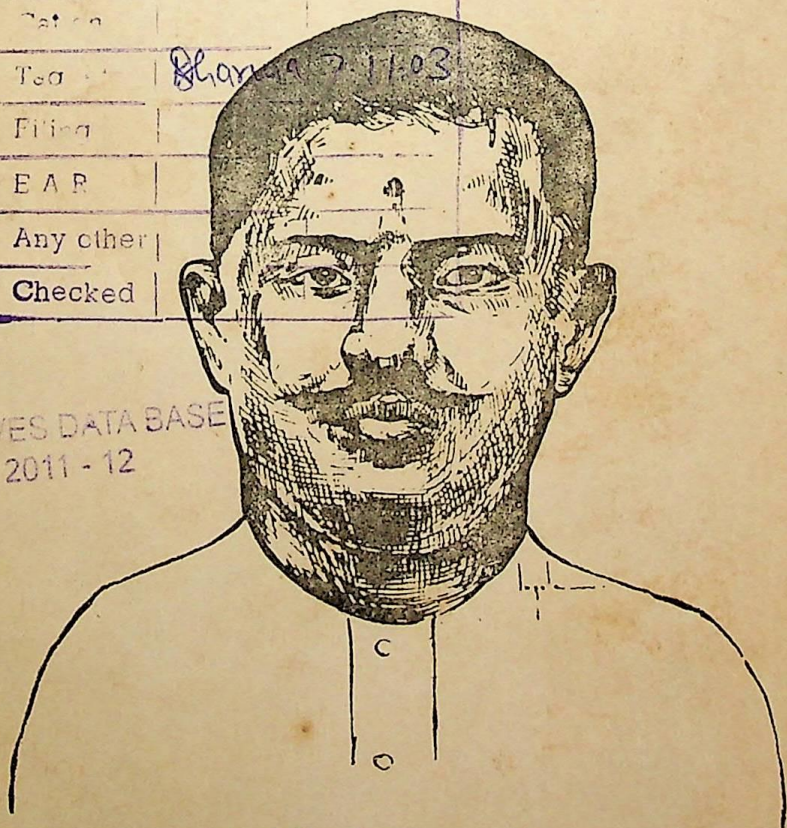 Tea Dharma 7.11.03
Filing
E A R
Any other
Checked
VES DATA BASE
2011 - 12